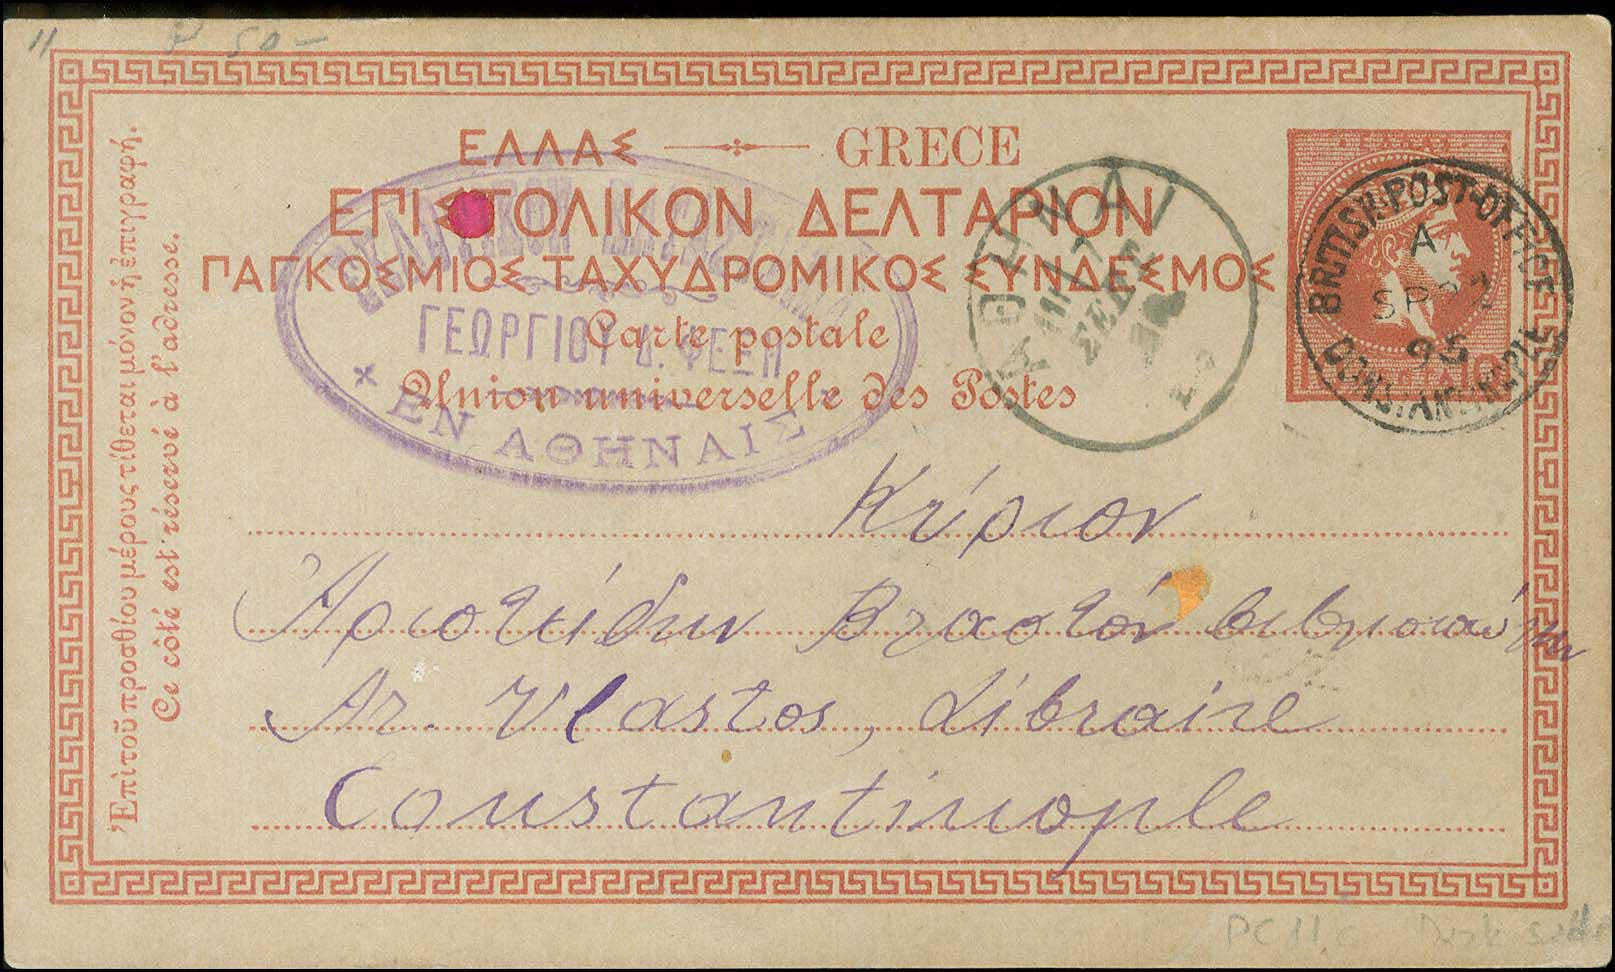 " 50-
ΕΛΛΑΣ GRECE
ΕΠΙΣΤΟΛΙΚΟΝ ΔΕΛΤΑΡΙΟΝ
ΠΑΓΚΟΣΜΙΟΣ ΤΑΧΥΔΡΟΜΙΚΟΣ ΣΥΝΔΕΣΜΟΣ
Carte postale
Union universelle des Postes
Ἐπὶ τοῦ προσθίου μέρους τίθεται μόνον ἡ ἐπιγραφή.
Ce côté est réservé à l'adresse.
ΓΕΩΡΓΙΟΥ Δ. ΦΕΞΗ
× ΕΝ ΑΘΗΝΑΙΣ ×
ΑΘΗΝΑΙ
ΣΕΠΤ
BRITISH POST-OFFICE
A
SP 27
95
CONSTANTINOPLE
10
Κύριον
Ἀριστείδην Βλαστόν βιβλιοπώλην
Ar. Vlastos, Libraire
Constantinople
PC 11